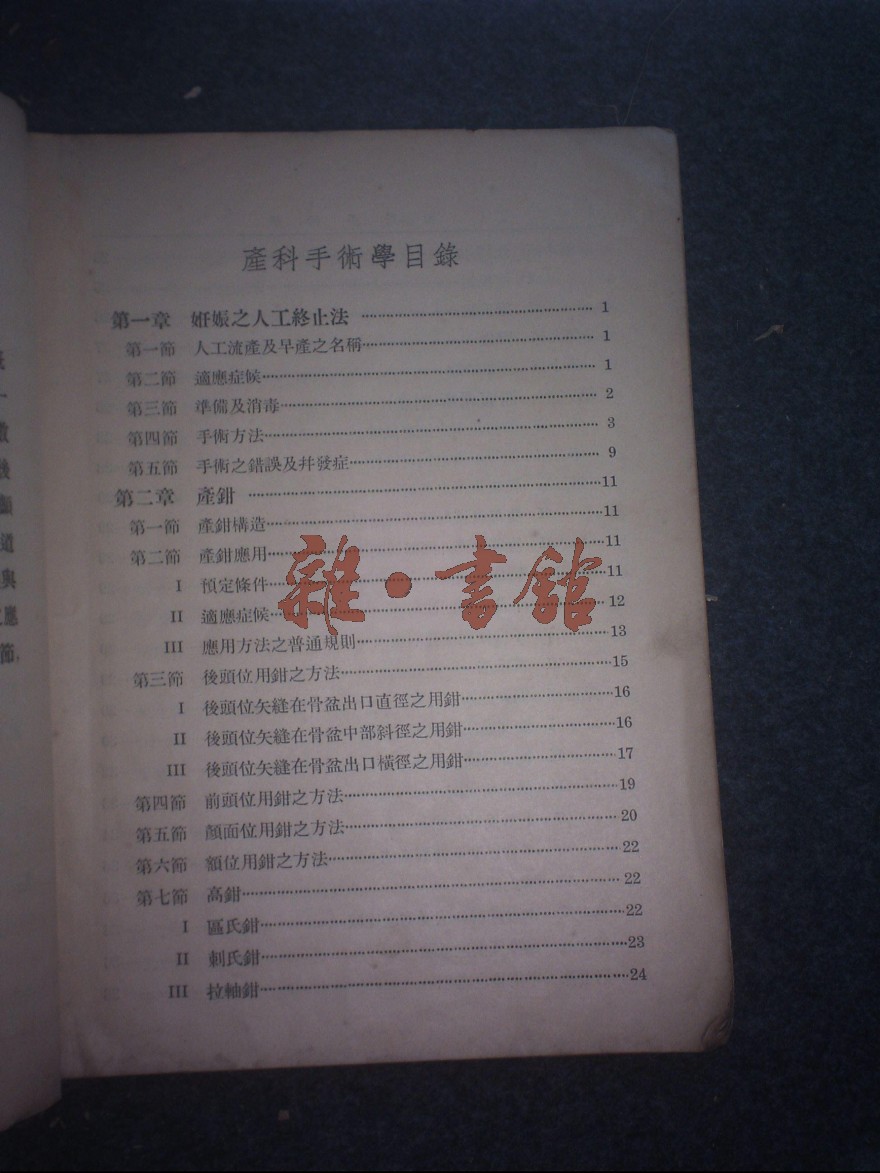 產科手術學目錄
第一章 姙娠之人工終止法 1
第一節 人工流產及早產之名稱 1
第二節 適應症候 1
第三節 準備及消毒 2
第四節 手術方法 3
第五節 手術之錯誤及幷發症 9
第二章 產鉗 11
第一節 產鉗構造 11
第二節 產鉗應用 11
I 預定條件 11
II 適應症候 12
III 應用方法之普通規則 13
第三節 後頭位用鉗之方法 15
I 後頭位矢縫在骨盆出口直徑之用鉗 16
II 後頭位矢縫在骨盆中部斜徑之用鉗 16
III 後頭位矢縫在骨盆出口橫徑之用鉗 17
第四節 前頭位用鉗之方法 19
第五節 顏面位用鉗之方法 20
第六節 額位用鉗之方法 22
第七節 高鉗 22
I 區氏鉗 22
II 刺氏鉗 23
III 拉軸鉗 24
雜·書館
後
道
與
應
節,